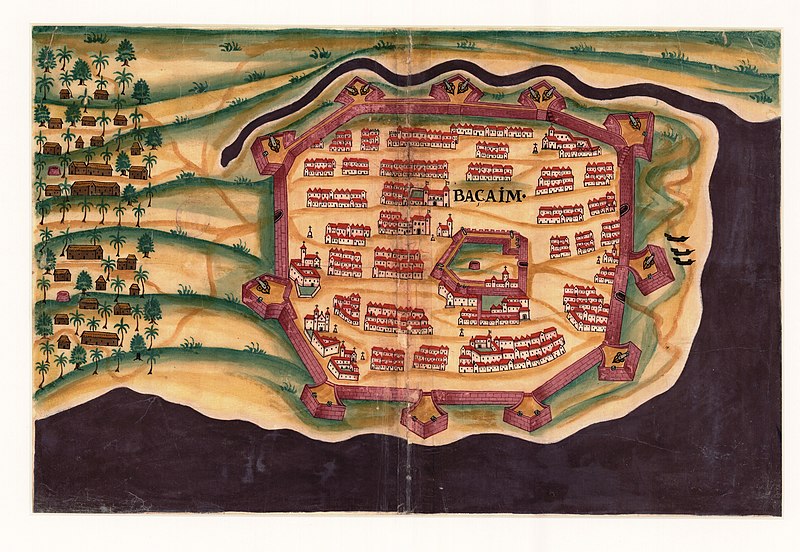 BAÇAİM·